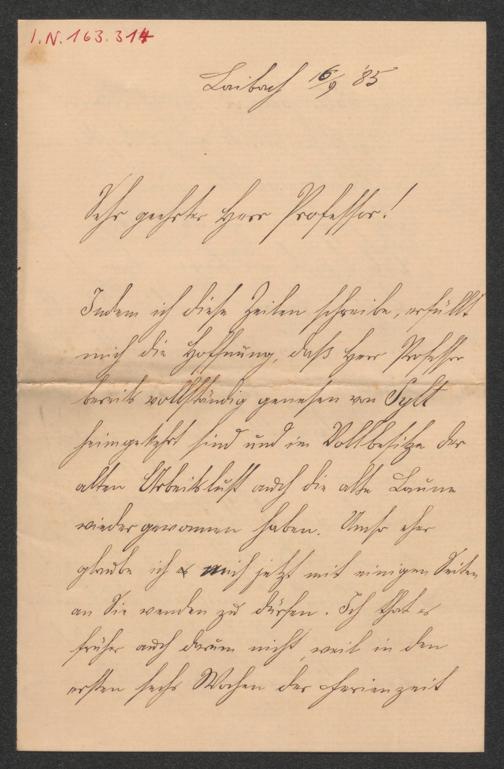 I.N. 163.314
Laibach 16/9 85
Sehr geehrter Herr Professor!
Indem ich diese Zeilen schreibe, erfüllt
mich die Hoffnung, daß Herr Professor
bereits vollständig genesen von Sylt
heimgekehrt sind und im Vollbesitze der
alten Arbeitslust auch die alte Laune
wieder gewonnen haben. Umso eher
glaube ich mich jetzt mit einigen Zeilen
an Sie wenden zu dürfen. Ich that es
früher auch darum nicht, weil in den
ersten sechs Wochen der Ferienzeit